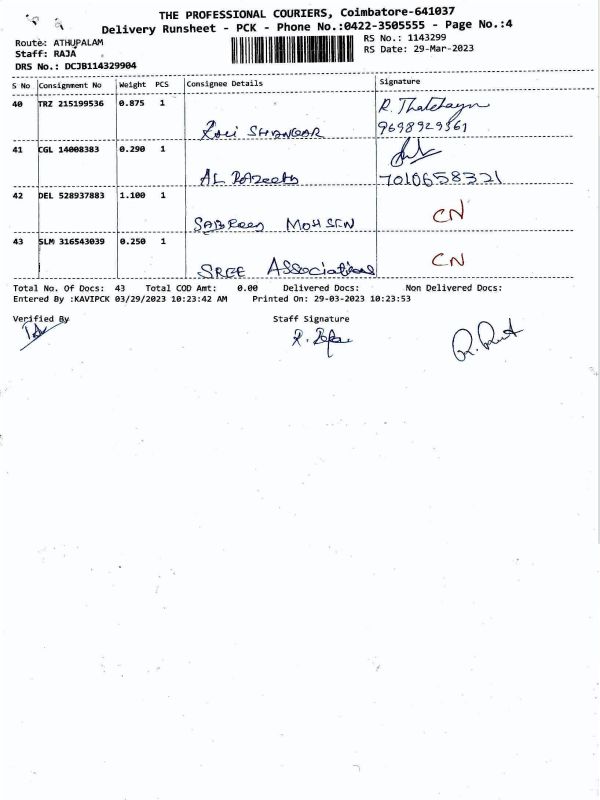 THE PROFESSIONAL COURIERS, Coimbatore-641037
Delivery Runsheet - PCK - Phone No.:0422-3505555 - Page No.:4
Route: ATHUPALAM
RS No.: 1143299
Staff: RAJA
RS Date: 29-Mar-2023
DRS No.: DCJB114329904
S No Consignment No Weight PCS Consignee Details Signature
40 TRZ 215199536 0.875 1
R.
Ravi SHANGAR 9698929361
41 CGL 14008383 0.290 1
AL RAZeeth 7010658321
42 DEL 528937883 1.100 1
SABReen MOHSEN CN
43 SLM 316543039 0.250 1
SREE Associations CN
Total No. Of Docs: 43 Total COD Amt: 0.00 Delivered Docs: Non Delivered Docs:
Entered By :KAVIPCK 03/29/2023 10:23:42 AM Printed On: 29-03-2023 10:23:53
Verified By Staff Signature